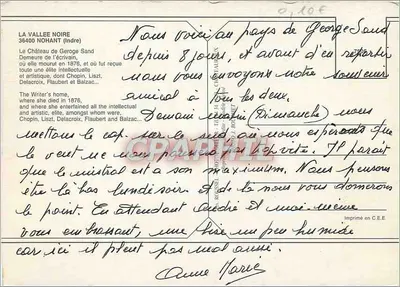 0,10€
LA VALLEE NOIRE
36400 NOHANT (Indre)
Le Château de Geroge Sand
Demeure de l'écrivain,
où elle mourut en 1876, et où fut reçue
toute une élite intellectuelle
et artistique, dont Chopin, Liszt,
Delacroix, Flaubert et Balzac...
The Writer's home,
where she died in 1876,
and where she entertained all the intellectual
and artistic, elite, amongst whom were,
Chopin, Liszt, Delacroix, Flaubert and Balzac...
Nous voici au pays de George Sand
depuis 8 jours, et avant d'en repartir
nous vous envoyons notre souvenir
amical à tous les deux.
Demain matin (Dimanche) nous
mettons le cap sur le sud où nous espérons que
le vent ne nous poussera pas trop vite. Il parait
que le mistral est a son maximum. Nous pensons
être là bas lundi soir et de là nous vous donnerons
le point. En attendant André et moi-même
vous embrassent, une bise un peu humide
car ici il pleut pas mal aussi.
Anne Marie
Imprimé en C.E.E
CPAPHIL